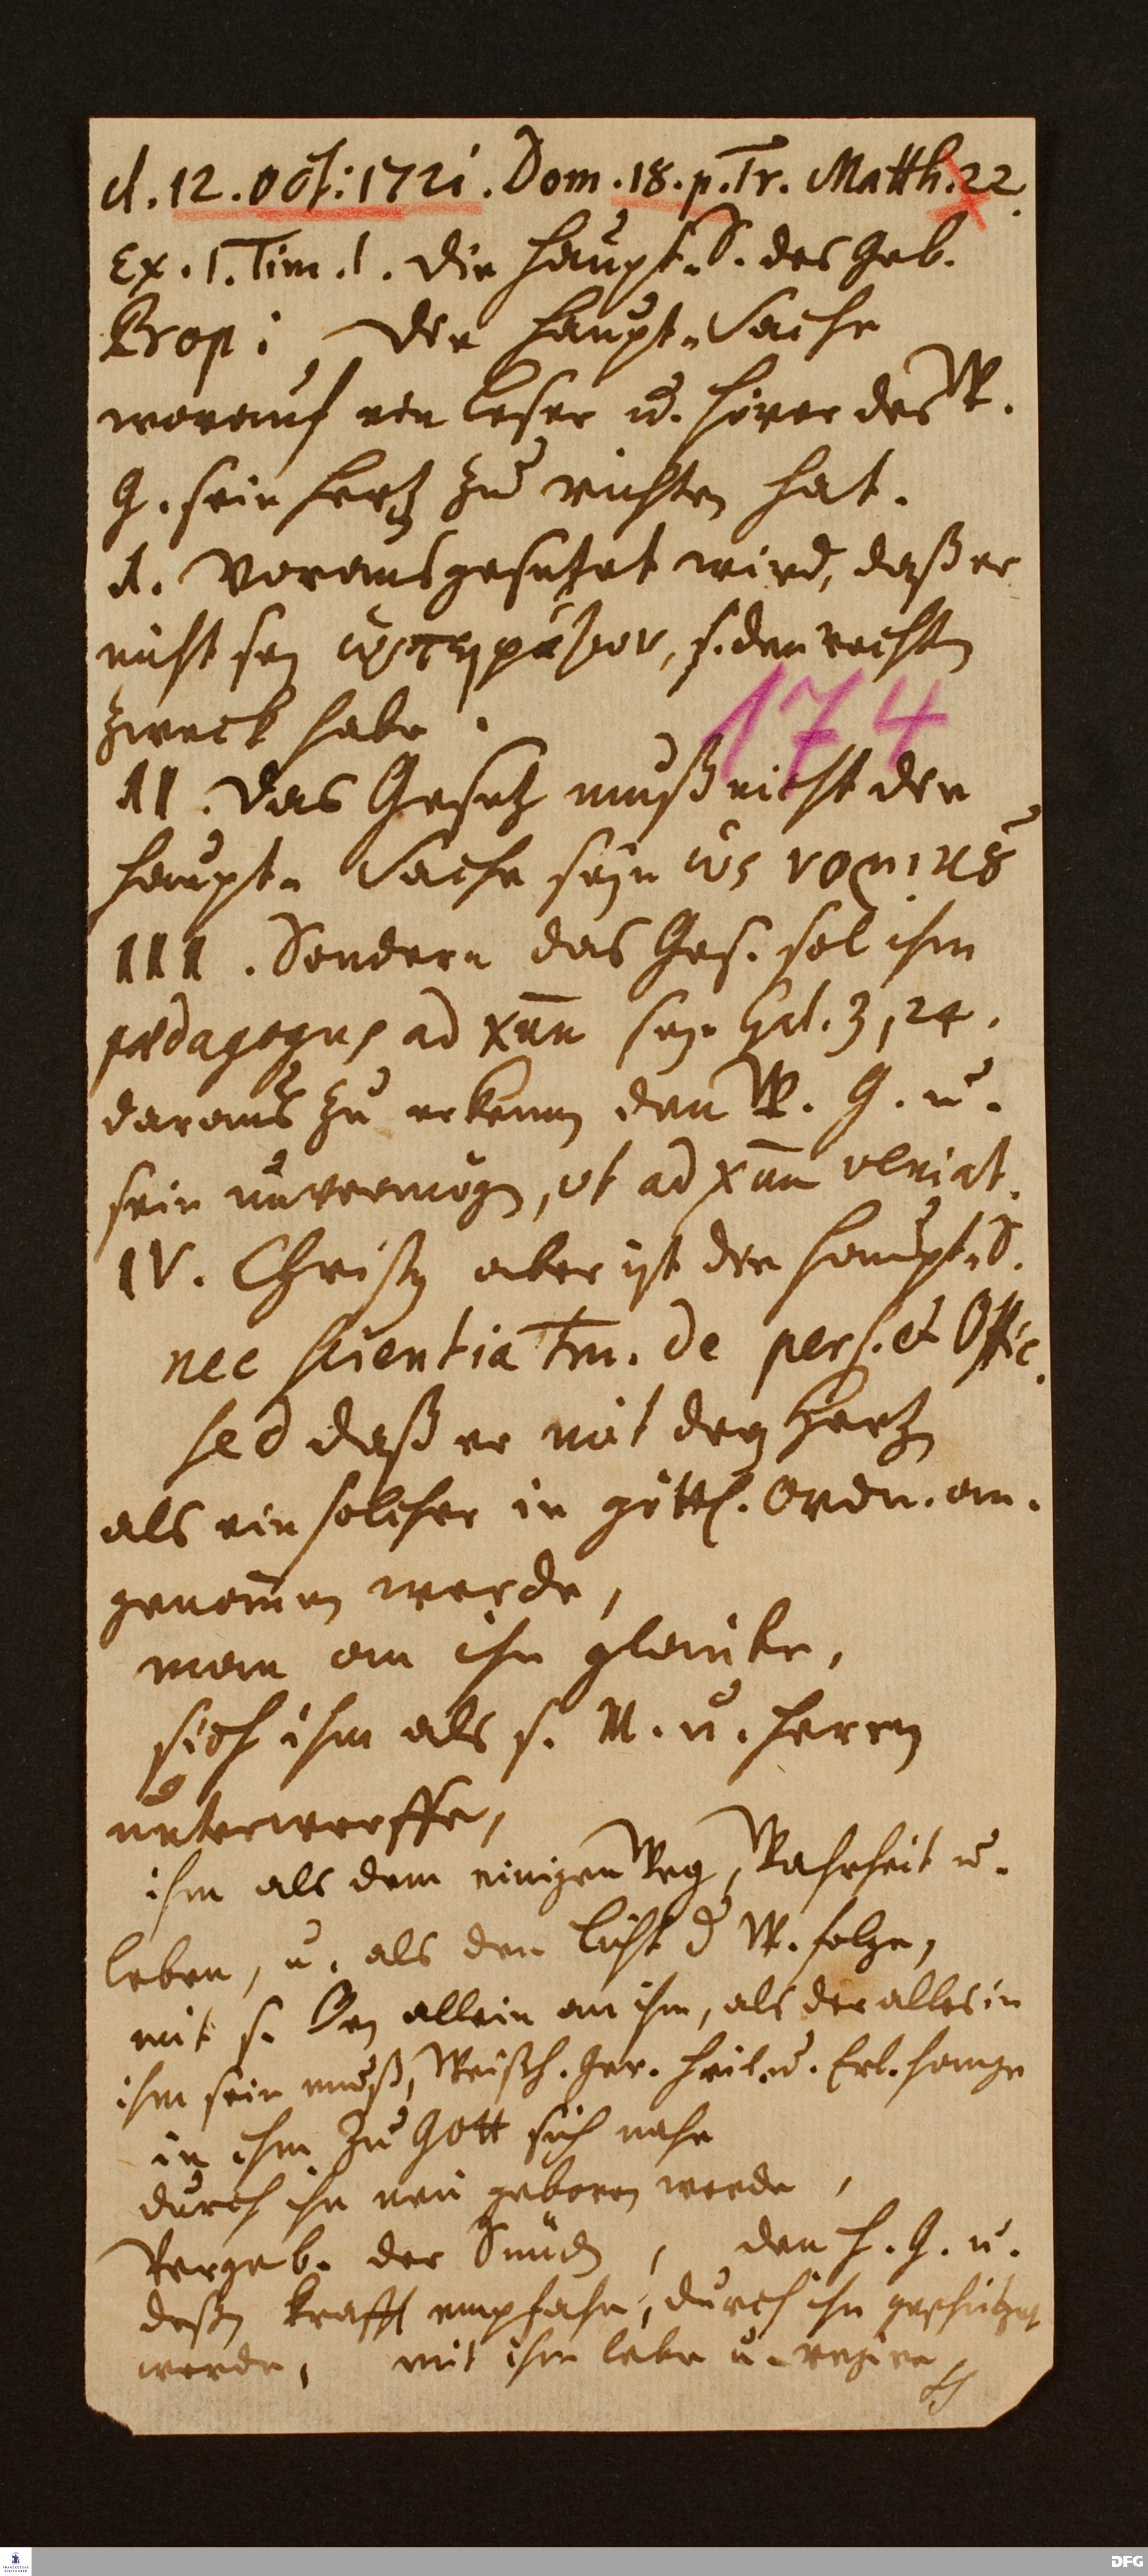 d. 12. Oct: 1721. Dom. 18. p. Tr. Matth. 22.
Ex. 1. Tim. 1. die Haupt-S. des Geb.
Prop: Die Haupt-Sache
worauf ein Leser u. Hörer des W.
G. sein Hertz zu richten hat.
I. Vorausgesetzet wird, daß er
nicht sey, s. den rechten
Zweck habe.
174
II. Das Gesetz muß nicht die
Haupt-Sache seyn ὡς νομικȣ
III. Sondern das Ges. sol ihm
pædagogus ad Xum seyn Gal. 3, 24.
daraus zu erkennen den W. G. u.
sein unvermögen, ut ad Xum veniat.
IV. Christus aber ist die Haupt-S.
nec scientia tm. de pers. et Offic.
sed daß er mit dem Hertzen
als ein solcher in göttl. Ordn. an-
genom̄en werde,
man an ihn glaube,
sich ihm als s. M. u. Herren
unterwerffe,
ihm als dem einigen Weg, Wahrheit u.
Leben, u. als den Licht d W. folge,
mit s. allein an ihm, als der alles in
ihm sein muß, Weißh. Ger. Heil. u. Erl. hange
in ihm zu Gott sich nahe
durch ihn neu geboren werde,
Vergeb. der Sünden, den H. G. u.
deßen Krafft empfahe, durch ihn geschützet
werde, mit ihm lebe u. regire
DFG